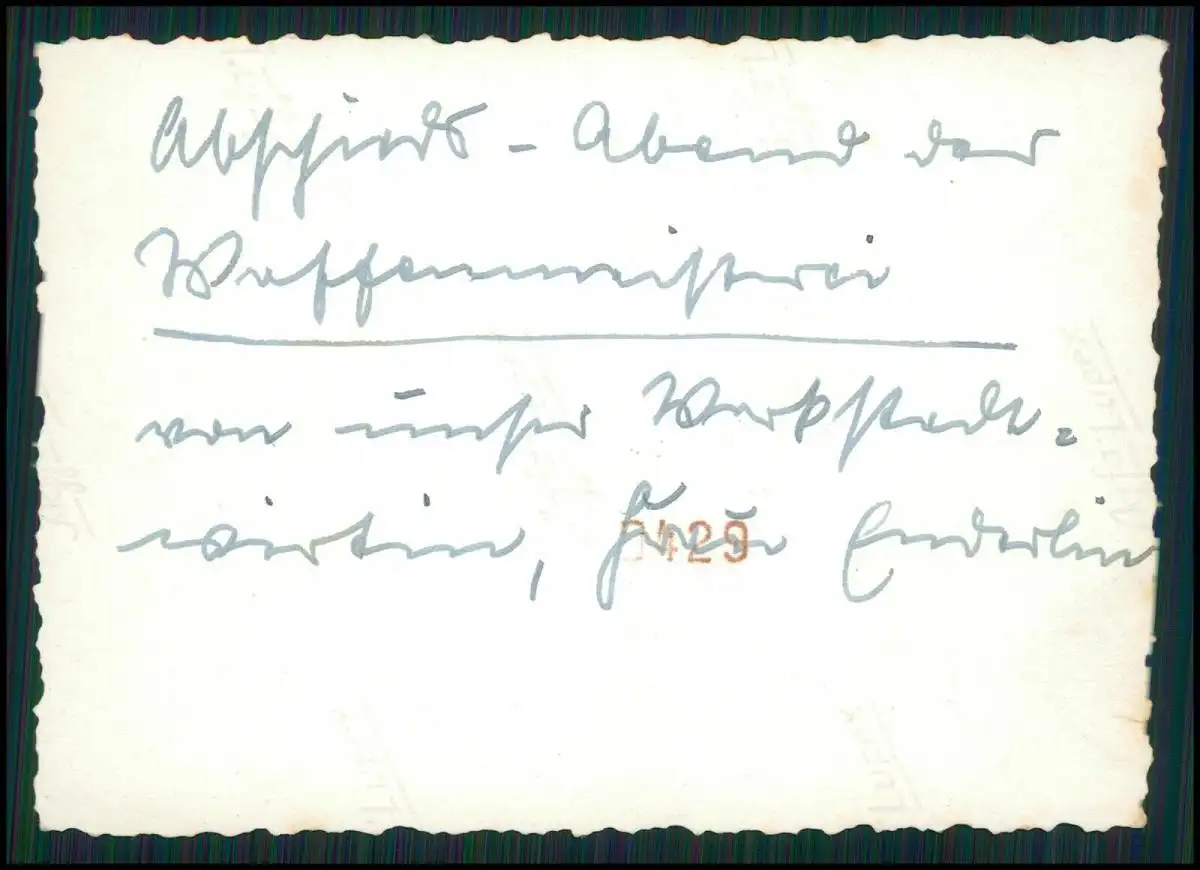 Abschieds - Abend der
Waffenmeisterei
von unser Werkstatt=
wirtin, Frau Enderlin
3429